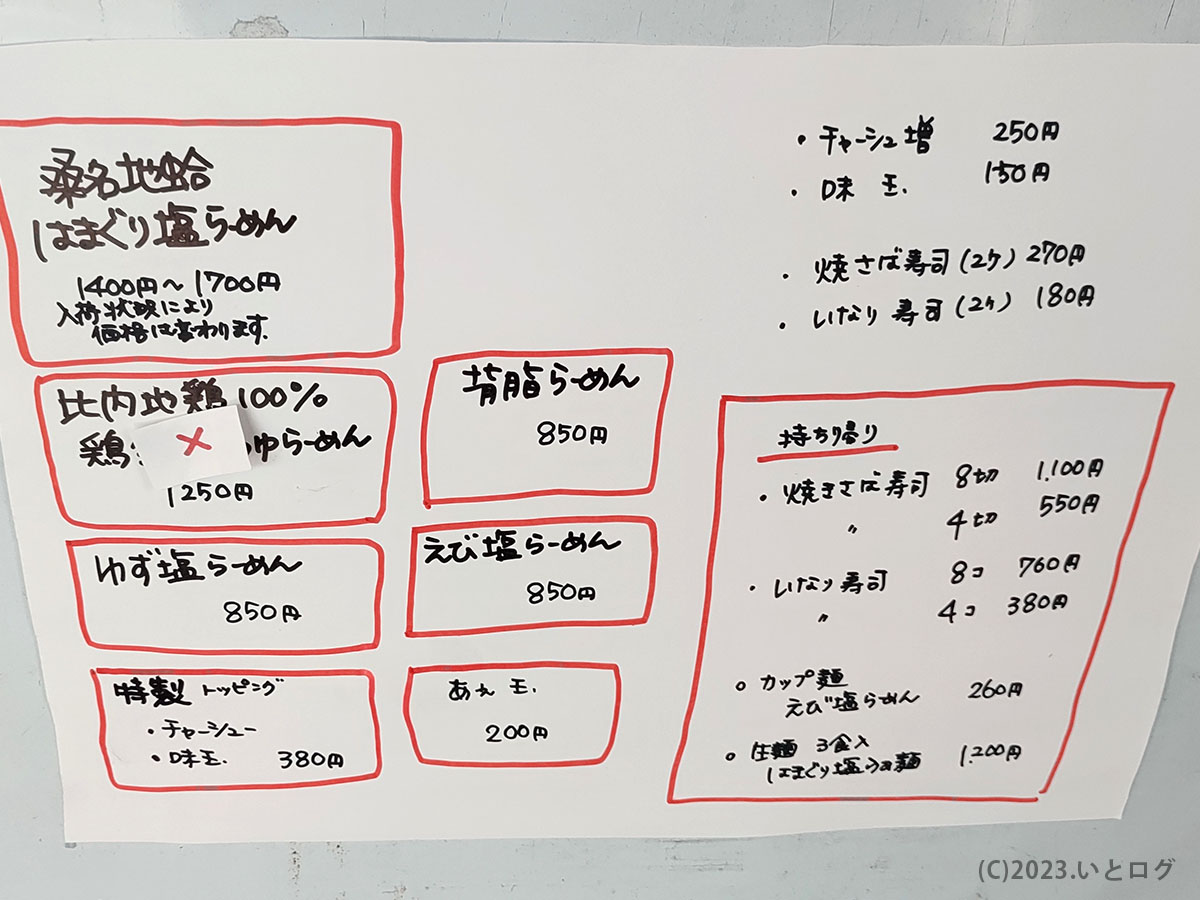 桑名地蛤
はまぐり塩らーめん
1400円～1700円
入荷状況により
価格は変わります.
比内地鶏100%
鶏 ゆらーめん
×
1250円
ゆず塩らーめん
850円
特製 トッピング
・チャーシュー
・味玉. 380円
背脂らーめん
850円
えび塩らーめん
850円
玉.
200円
・チャーシュ増 250円
・味玉. 150円
・焼さば寿司(2ケ) 270円
・いなり寿司(2ケ) 180円
持ち帰り
・焼きさば寿司 8切 1,100円
〃 4切 550円
・いなり寿司 8コ 760円
〃 4コ 380円
○ カップ麺
えび塩らーめん 260円
○ 生麺 3食入
はまぐり塩 麺 1,200円
(C)2023.いとログ